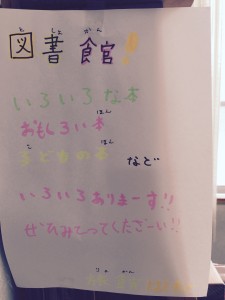 図書館!
いろいろな本
おもしろい本
子どもの本 など
いろいろありまーす!!
ぜひみてってくださーい!!